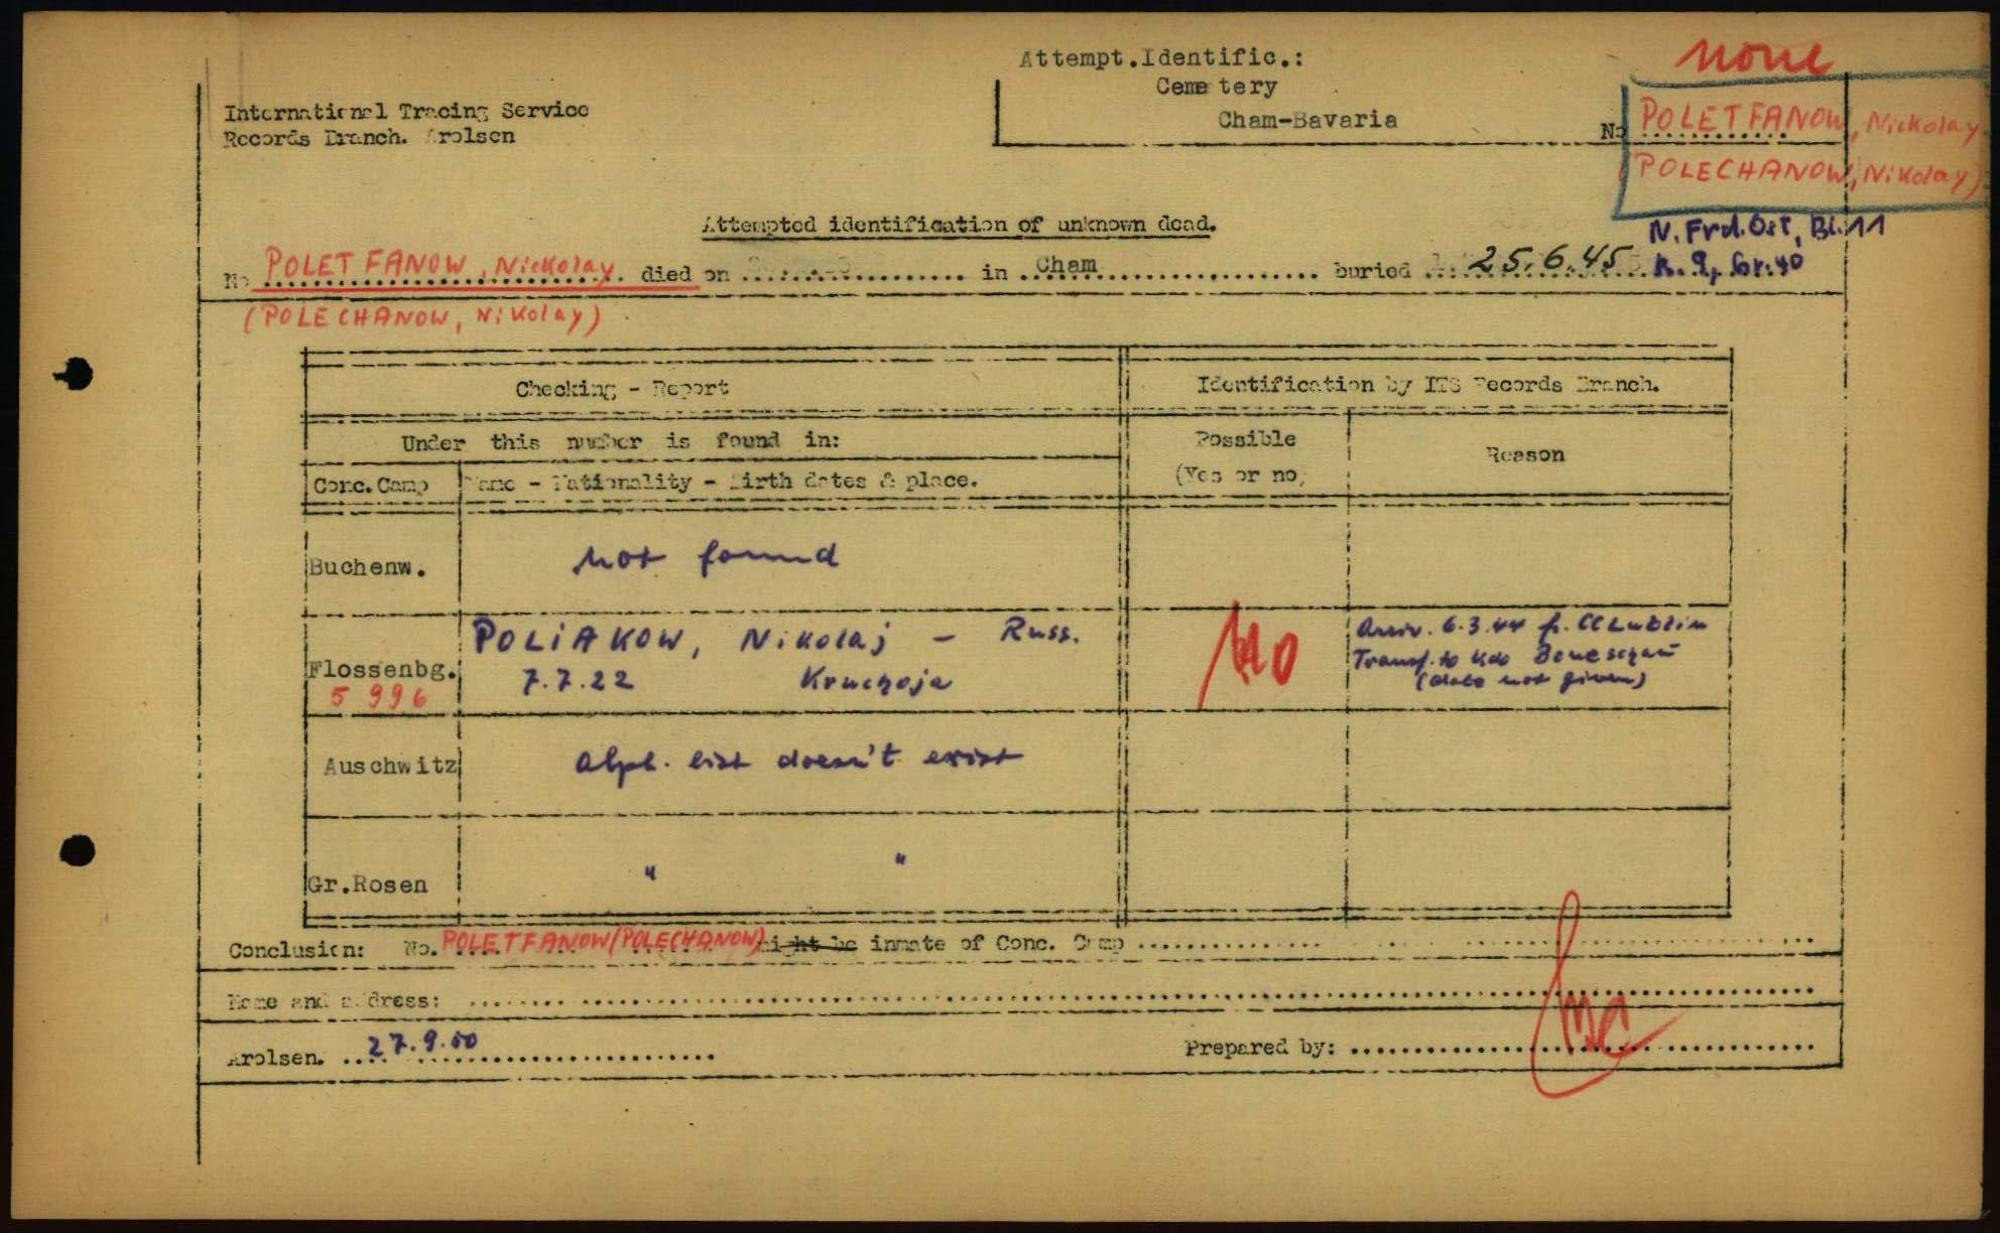 Attempt.Identific.:
Cemetery
Cham-Bavaria
none
International Tracing Service
Records Branch. Arolsen
No POLETFANOW, Nickolay
(POLECHANOW, Nikolay)
Attempted identification of unknown dead.
N. Frd. Ost, Bl. 11
R. 9, Gr. 40
No POLETFANOW, Nickolay died on in Cham buried 25.6.45
(POLECHANOW, Nikolay)
Checking - Report
Identification by ITS Records Branch.
Under this number is found in:
Possible
(Yes or no)
Reason
Conc.Camp Name - Nationality - Birth dates & place.
Buchenw. not found
Flossenbg. POLIAKOW, Nikolaj - Russ.
5 996 7.7.22 Kruchoja
No
Arriv. 6.3.44 fr. CC Lublin
Transf. to Kdo
(date not given)
Auschwitz alph. list doesn't exist
Gr.Rosen " "
Conclusion: No. POLETFANOW (POLECHANOW) might be inmate of Conc. Camp
Name and address:
Arolsen. 27.9.50
Prepared by: